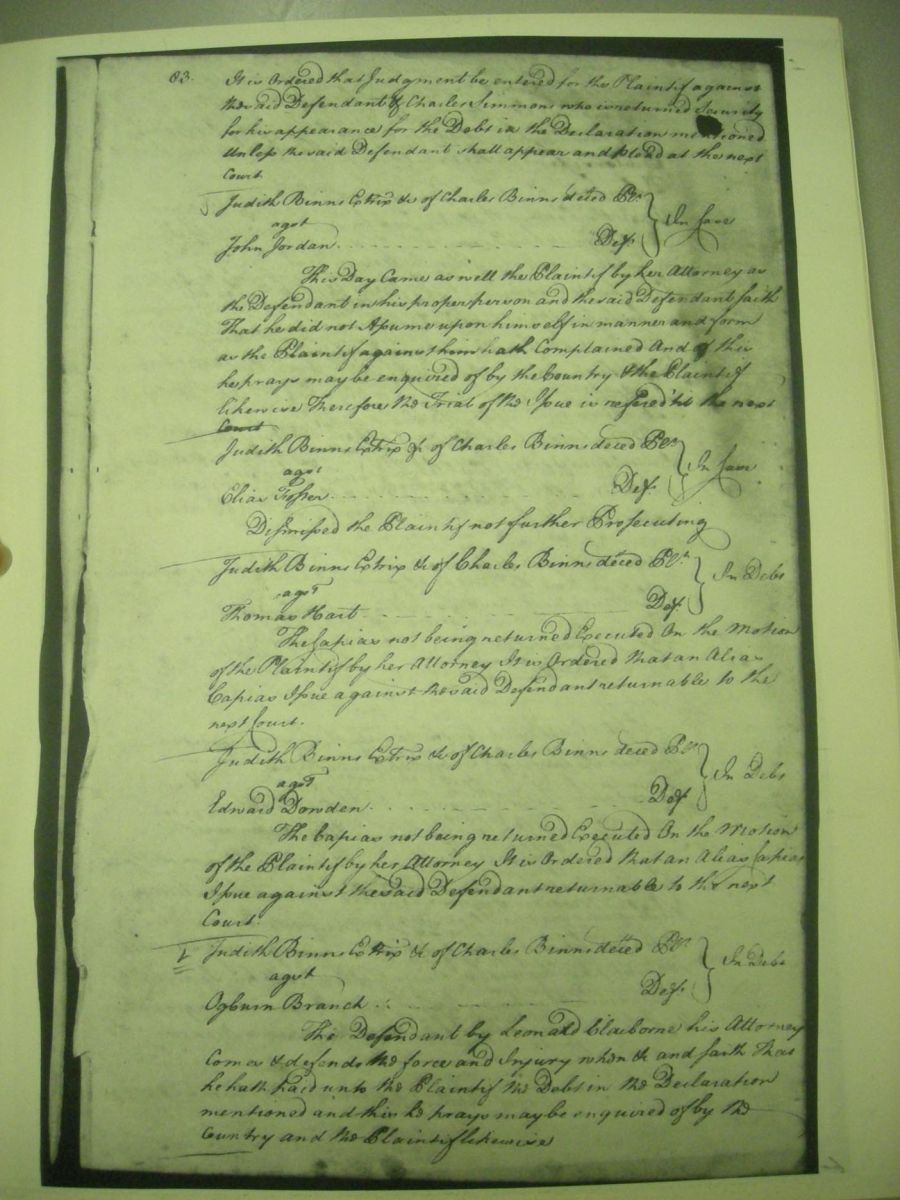 83.
It is Ordered that Judgment be entered for the Plaintif against
the said Defendant & Charles Simmons who is returned Security
for his appearance for the Debt in the Declaration mentioned
Unless the said Defendant shall appear and plead at the next
Court
Judith Binns Extrix &c of Charles Binns deced Plt.
agst
John Jordan Def. In Case
This Day Came as well the Plaintif by her Attorney as
the Defendant in his proper person and the said Defendant saith
That he did not Assume upon himself in manner and form
as the Plaintif against him hath Complained And of this
he prays may be enquired of by the Country & the Plaintif
likewise Therefore the Trial of the Issue is refered till the next
Court
Judith Binns Extrix &c of Charles Binns deced Plt.
agst
Elias Def. In Case
Dismissed the Plaintif not further Prosecuting
Judith Binns Extrix &c of Charles Binns deced Plt.
agst
Thomas Hart Def. In Debt
The Capias not being returned Executed On the Motion
of the Plaintif by her Attorney It is Ordered that an Alias
Capias Issue against the said Defendant returnable to the
next Court.
Judith Binns Extrix &c of Charles Binns deced Plt.
agst
Edward Dowden Def. In Debt
The Capias not being returned Executed On the Motion
of the Plaintif by her Attorney It is Ordered that an Alias Capias
Issue against the said Defendant returnable to the next
Court.
Judith Binns Extrix &c of Charles Binns deced Plt.
agst
Ogburn Branch Def. In Debt
The Defendant by Leonard Claiborne his Attorney
Comes & defends the force and Injury when &c and saith that
he hath paid unto the Plaintif the Debt in the Declaration
mentioned and this he prays may be enquired of by the
Country and the Plaintif likewise